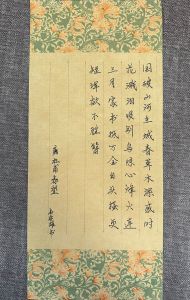 国破山河在城春草木深感时
花溅泪恨别鸟惊心烽火连
三月家书抵万金白头搔更
短浑欲不胜簪
唐杜甫春望